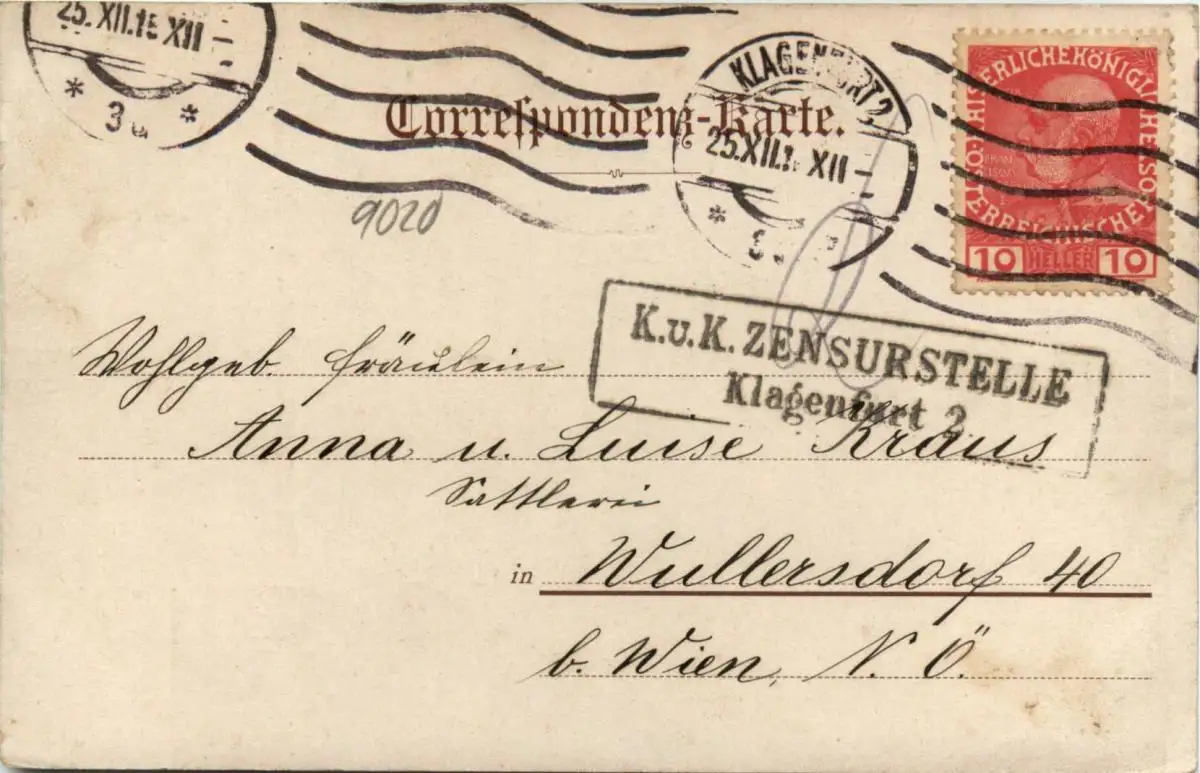 25.XII.15 XII
* 3a *
KLAGENFURT 2
25.XII.1 XII
Correspondenz-Karte.
KAISERLICHE KÖNIGLICHE ÖSTERREICHISCHE POST
10 HELLER 10
9020
K.u.K. ZENSURSTELLE
Klagenfurt 2
Wohlgeb. Fräulein
Anna u. Luise Kraus
Sattlerei
in Wullersdorf 40
b. Wien, N. Ö.